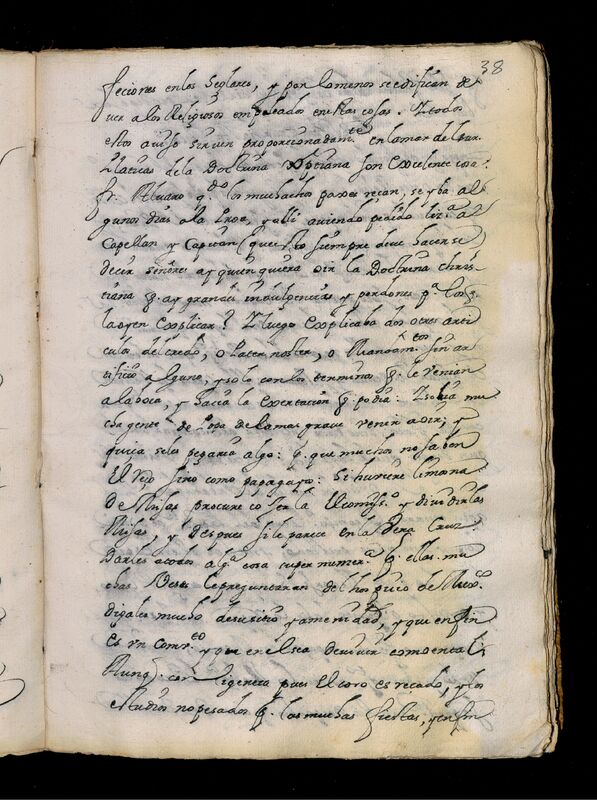 38
feciones en los Seglares, y por lo menos se edifican de
ver a los Religiosos empleados en estas cosas. Y todos
estos aviso sirven proporcionadam.te en la mar de las
Platicas de la Doctrina Xptiana son excelente cosa.
fr. Alvaro q.do los muchachos parescan, se yba al
gunos dias a la Proa, y alli aviendo pedido liz.a al
Capellan y Capitan (que esto siempre deve hacerse)
decir señores ay quien quiera oir la Doctrina chris-
tiana q. ay grandes indulgencias y perdones p.a los q.
la oyen explicar? Y luego explicaba dos o tres arti
culos del credo, o Pater noster, o Mandam.tos sin ar
tificio alguno, y solo con los terminos q. le venian
a la boca, y hacia la exortacion q. podia: Y solia mu
cha gente de Popa de la mas grave venir a oir; y
quiça se les pegaria algo: q. que muchos no saben
El sino como papagayo: Si huviere limosna
de Misas procure coserla El comiss.o y dividir las
Misas, y despues si le parece en la Vera Cruz
Darles a todos alg.a cosa q. ellos mu
chas Veses le preguntaran del hospicio de Mex.co
digales mucho de su sitio y amenidad, y que en fin
es vn Conv.to y que en el se a de vivir como en tal;
Aunq. con pues El coro es recado, y los
estudios no pesados q. las muchas fiestas, y en fin